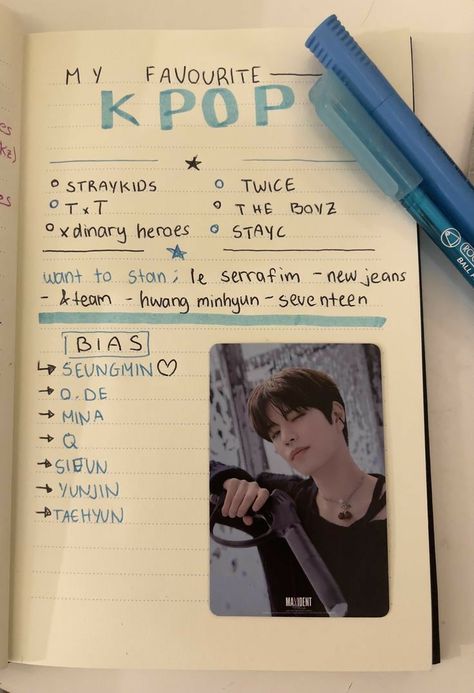 MY FAVOURITE
KPOP
STRAYKIDS
TWICE
TxT
THE BOYZ
xdinary heroes
STAYC
want to stan; le serrafim - new jeans
- &team - hwang minhyun - seventeen
BIAS
SEUNGMIN
O.DE
MINA
Q
SIEUN
YUNJIN
TAEHYUN
MAXIDENT
BALL